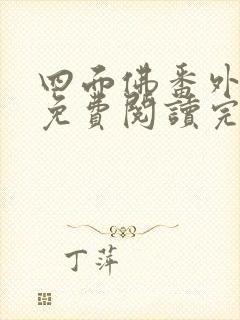 四面佛番外
免費閱讀完
丁萍